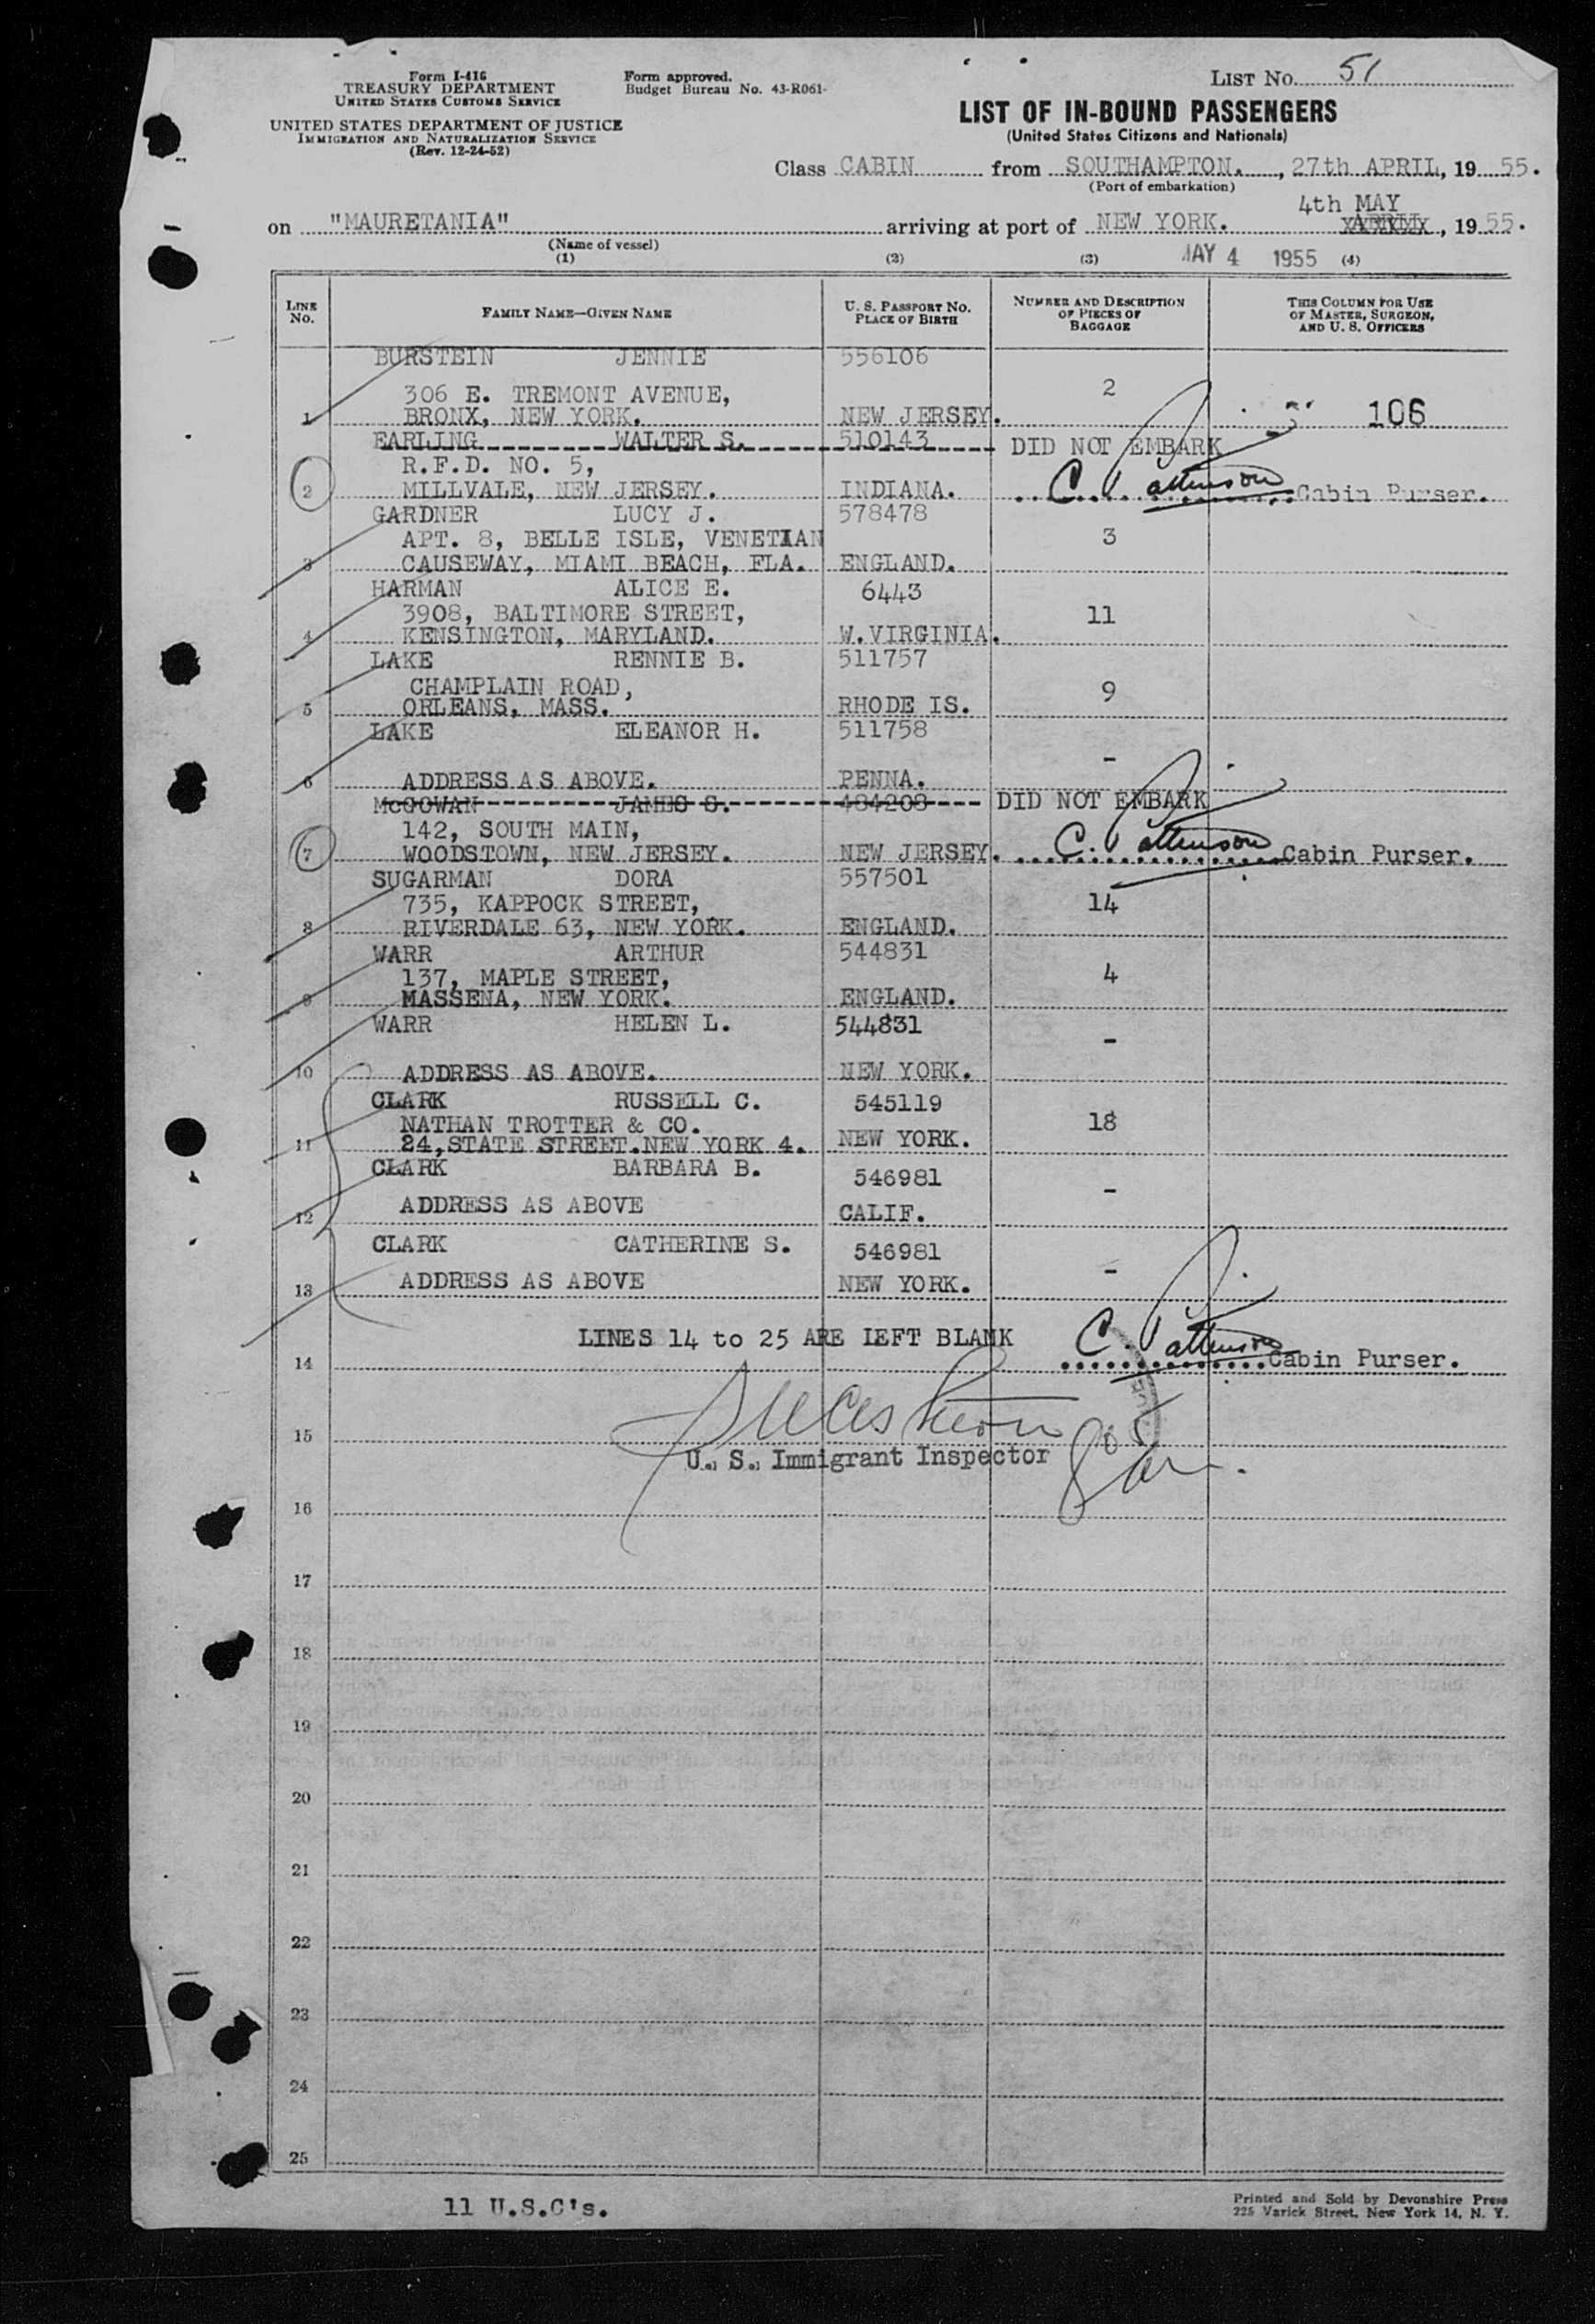 Form I-416
TREASURY DEPARTMENT
UNITED STATES CUSTOMS SERVICE
UNITED STATES DEPARTMENT OF JUSTICE
IMMIGRATION AND NATURALIZATION SERVICE
(Rev. 12-24-52)
Form approved.
Budget Bureau No. 43-R061-
LIST No. 51
LIST OF IN-BOUND PASSENGERS
(United States Citizens and Nationals)
Class CABIN from SOUTHAMPTON., 27th APRIL, 19 55.
(Port of embarkation)
4th MAY
on "MAURETANIA" arriving at port of NEW YORK. APRIL, 19 55.
(Name of vessel)
MAY 4 1955
(1) (2) (3) (4)
LINE No. FAMILY NAME—GIVEN NAME U. S. PASSPORT NO. PLACE OF BIRTH NUMBER AND DESCRIPTION OF PIECES OF BAGGAGE THIS COLUMN FOR USE OF MASTER, SURGEON, AND U. S. OFFICERS
BURSTEIN JENNIE 556106
306 E. TREMONT AVENUE, 2
1 BRONX, NEW YORK. NEW JERSEY. 106
EARLING WALTER S. 510143 DID NOT EMBARK
R.F.D. NO. 5,
2 MILLVALE, NEW JERSEY. INDIANA. C. Pattinson Cabin Purser.
GARDNER LUCY J. 578478
APT. 8, BELLE ISLE, VENETIAN 3
3 CAUSEWAY, MIAMI BEACH, FLA. ENGLAND.
HARMAN ALICE E. 6443
3908, BALTIMORE STREET, 11
4 KENSINGTON, MARYLAND. W.VIRGINIA.
LAKE RENNIE B. 511757
CHAMPLAIN ROAD, 9
5 ORLEANS, MASS. RHODE IS.
LAKE ELEANOR H. 511758
-
6 ADDRESS AS ABOVE. PENNA.
McGOWAN JAMES S. 484208 DID NOT EMBARK
142, SOUTH MAIN,
7 WOODSTOWN, NEW JERSEY. NEW JERSEY. C. Pattinson Cabin Purser.
SUGARMAN DORA 557501
735, KAPPOCK STREET, 14
8 RIVERDALE 63, NEW YORK. ENGLAND.
WARR ARTHUR 544831
137, MAPLE STREET, 4
9 MASSENA, NEW YORK. ENGLAND.
WARR HELEN L. 544831
-
10 ADDRESS AS ABOVE. NEW YORK.
CLARK RUSSELL C. 545119
NATHAN TROTTER & CO. 18
11 24,STATE STREET.NEW YORK 4. NEW YORK.
CLARK BARBARA B. 546981
ADDRESS AS ABOVE -
12 CALIF.
CLARK CATHERINE S. 546981
ADDRESS AS ABOVE -
13 NEW YORK.
LINES 14 to 25 ARE LEFT BLANK C. Pattinson
14 Cabin Purser.
15
U. S. Immigrant Inspector
16
17
18
19
20
21
22
23
24
25
11 U.S.C's.
Printed and Sold by Devonshire Press
225 Varick Street, New York 14, N. Y.